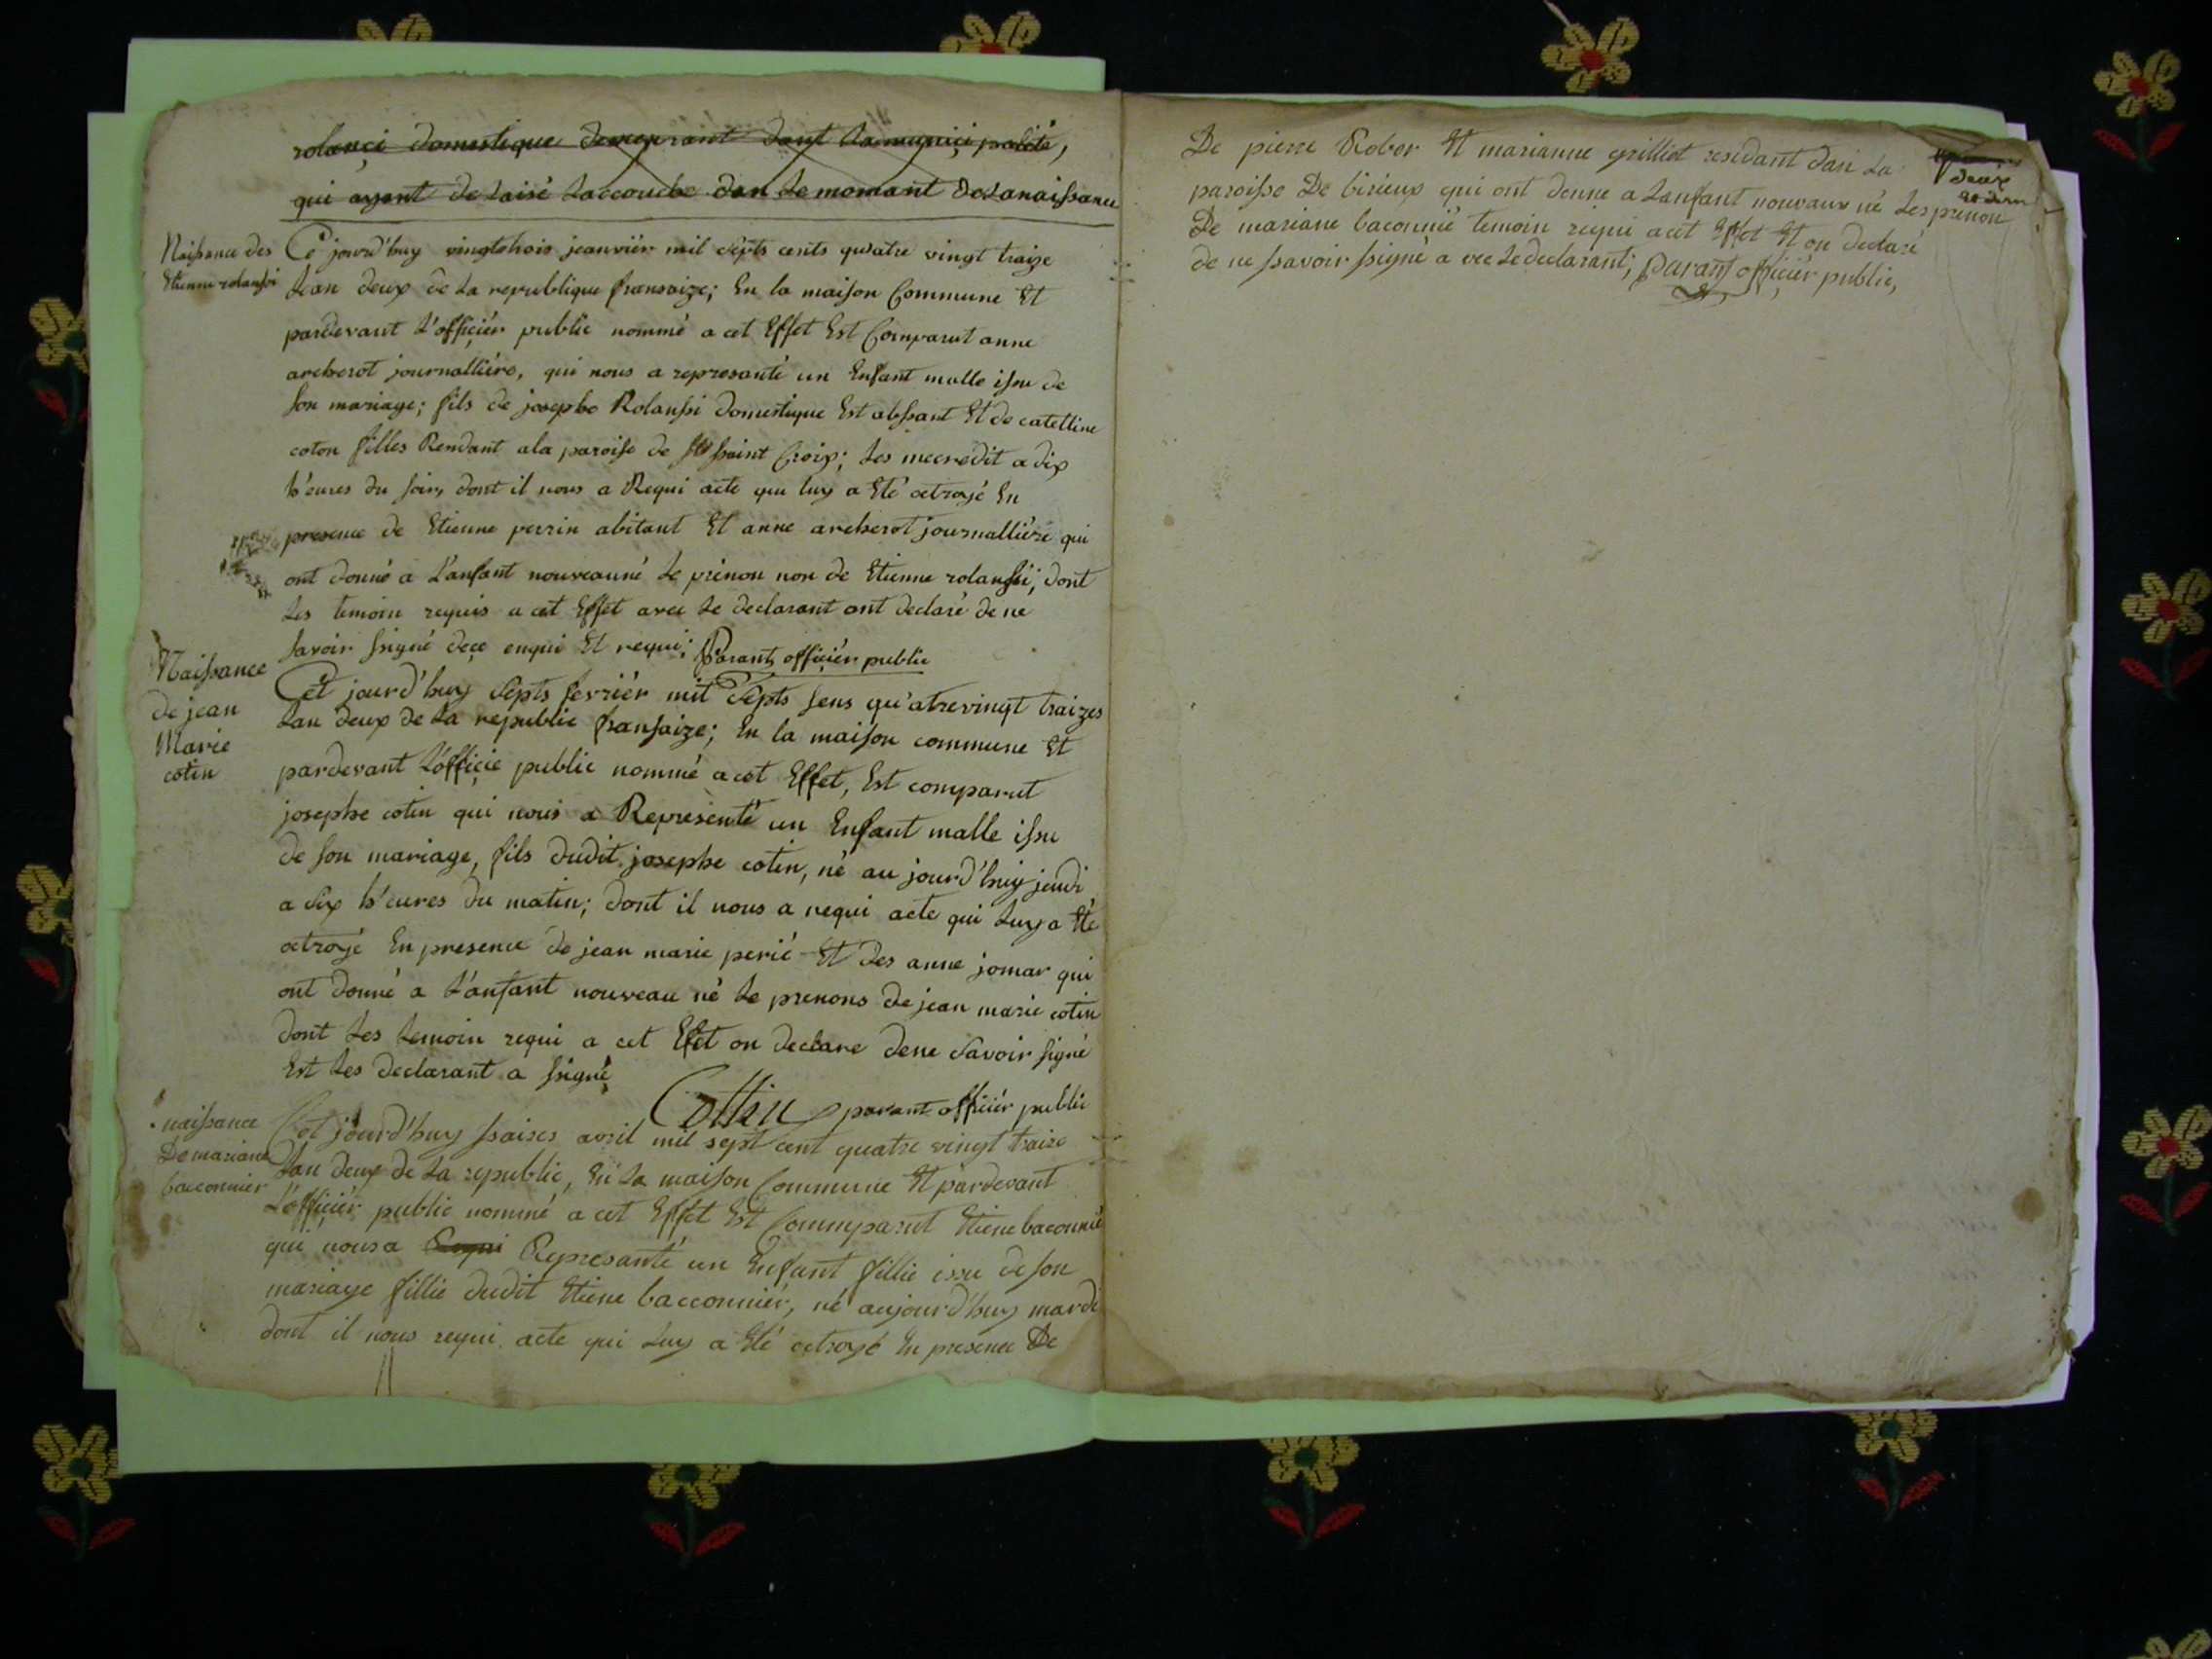 rolançi domestique demeurant dant la muniçipalité,
qui ayant delaisé laccouche dan le momant de la naissance
Naissance des
Etienne rolanssi
Ce jourd'huy vingtetrois jeanviér mil sépts cents quatre vingt traize
lean deux de la republique fransaize; En la maison Commune Et
pardevant l'officiér public nommé a cet Effet Est Comparut anne
archerot journalliére, qui nous a represanté un Enfant malle issu de
son mariage; fils de josephe Rolanssi domestique Est abssant Et de catelline
coton filles Rendant a la paroise de ssaint Croix; les mecredit a dix
h'eures du soir, dont il nous a Requi acte qui luy a Eté octroyé En
presence de Etienne perrin abitant Et anne archerot journalliére qui
ont donné a L'anfant nouveauné le prénon non de Etienne rolanssi; dont
les temoin requis a cet Effet avec le declarant ont declaré de ne
savoir ssigné dece enqui Et requi; Parant officiér public
Naissance
de jean
Marie
cotin
Cét jourd'huy sépts fevriér mil sépts sens qu'atrevingt traizes
lan deux de la republic fransaize; En la maison commune Et
pardevant L'officie public nommé a cet Effet, Est comparut
josephe cotin qui nous a Représenté un Enfant malle issu
de son mariage, fils dudit josephe cotin, né au jourd'huy jeudi
a six h'eures du matin; dont il nous a requi acte qui luy a Eté
octroyé En presence de jean marie perié Et des anne jomar qui
ont donné a L'anfant nouveau né le prenons de jean marie cotin
dont les temoin requi a cet Efet on declare dene savoir signé
Est les declarant a ssigné
Cottin parant officiér public
naissance
De mariane
bacconnier
Cet jourd'huy ssaises avril mil sept cent quatre vingt traise
lan deux de la republic, En la maison Commune Et pardevant
L'officiér public nommé a cet Effet Est Commparut Etiene baconnié
qui nous a Requi Represanté un Enfant fillie issu de son
mariage fillie dudit Etiene bacconniér, né aujourd'huy mardi
dont il nous requi acte qui luy a Eté octroyé En presence De
deux
De pierre Robor Et marianne grilliet residant dan La
paroisse De birieux qui ont donne a Lanfant nouvaux né les prenon
De mariane baconnié temoin requi a cet Effet Et on declaré
de ne ssavoir ssigné a vec le declarant; Parant officiér public,